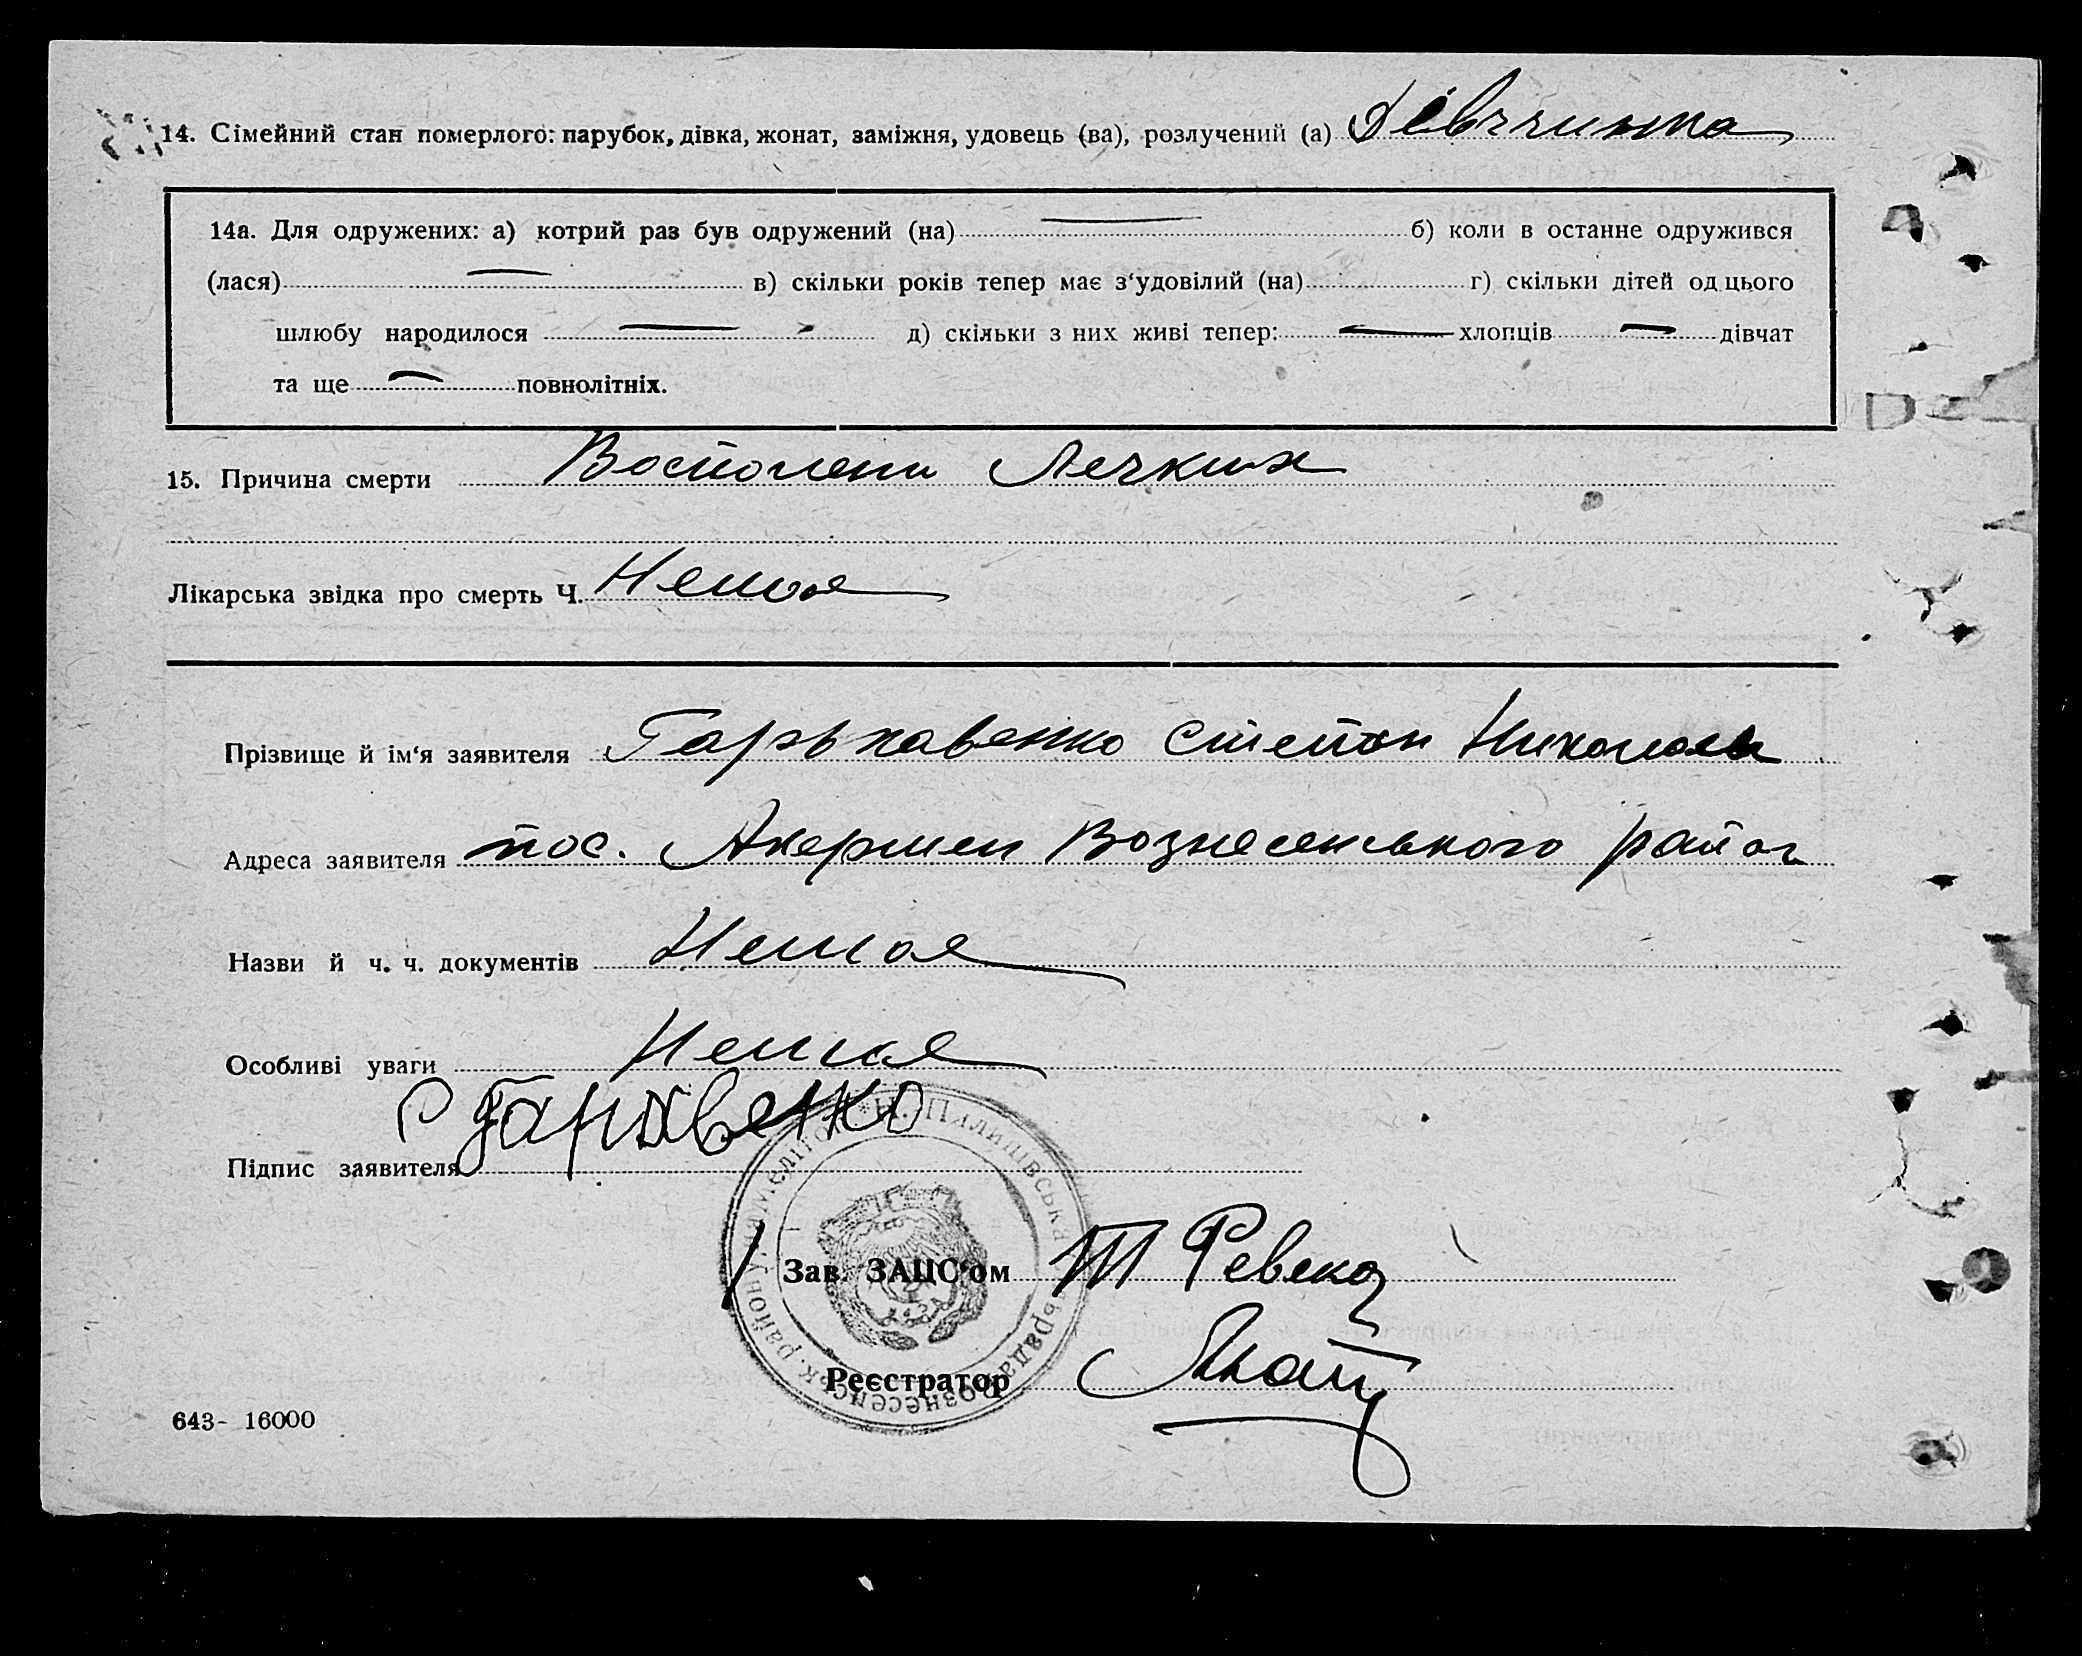 14. Сімейний стан померлого: парубок, дівка, жонат, заміжня, удовець (ва), розлучений (а) Дівччинка
14а. Для одружених: а) котрий раз був одружений (на) — б) коли в останне одружився
(лася) — в) скільки років тепер має з‘удовілий (на) г) скільки дітей од цього
шлюбу народилося — д) скільки з них живі тепер: — хлопців — дівчат
та ще — повнолітніх.
15. Причина смерти Востолени Лечких
Лікарська звідка про смерть Ч. Немоя
Прізвище й ім‘я заявителя Степан
Адреса заявителя пос. Акермен Вознесенського район
Назви й ч. ч. документів Немоя
Особливі уваги Немоя
Підпис заявителя
Зав. ЗАЦС‘ом
Реєстратор
643- 16000